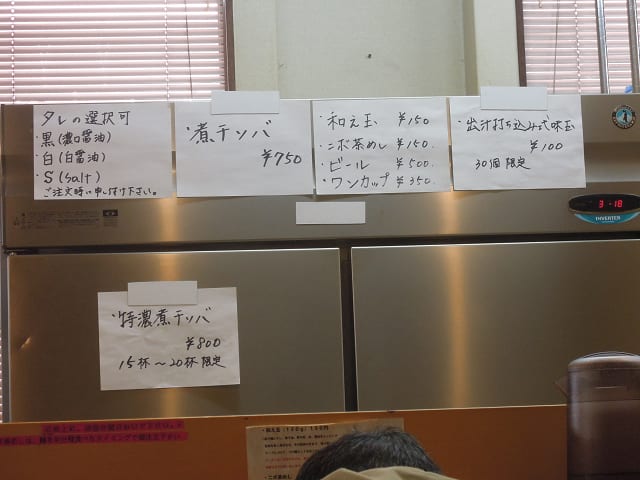 タレの選択可
・黒(濃口醤油)
・白(白醤油)
・S(Salt)
ご注文時に申し付け下さい。
・煮干ソバ
¥750
・和え玉 ¥150
・ニボ茶めし ¥150.
・ビール ¥500.
・ワンカップ ¥350.
・出汁打ち込み式味玉
¥100
30個限定
3-18
INVERTER
・特濃煮干ソバ
¥800
15杯〜20杯限定
・和え玉(120g)150円